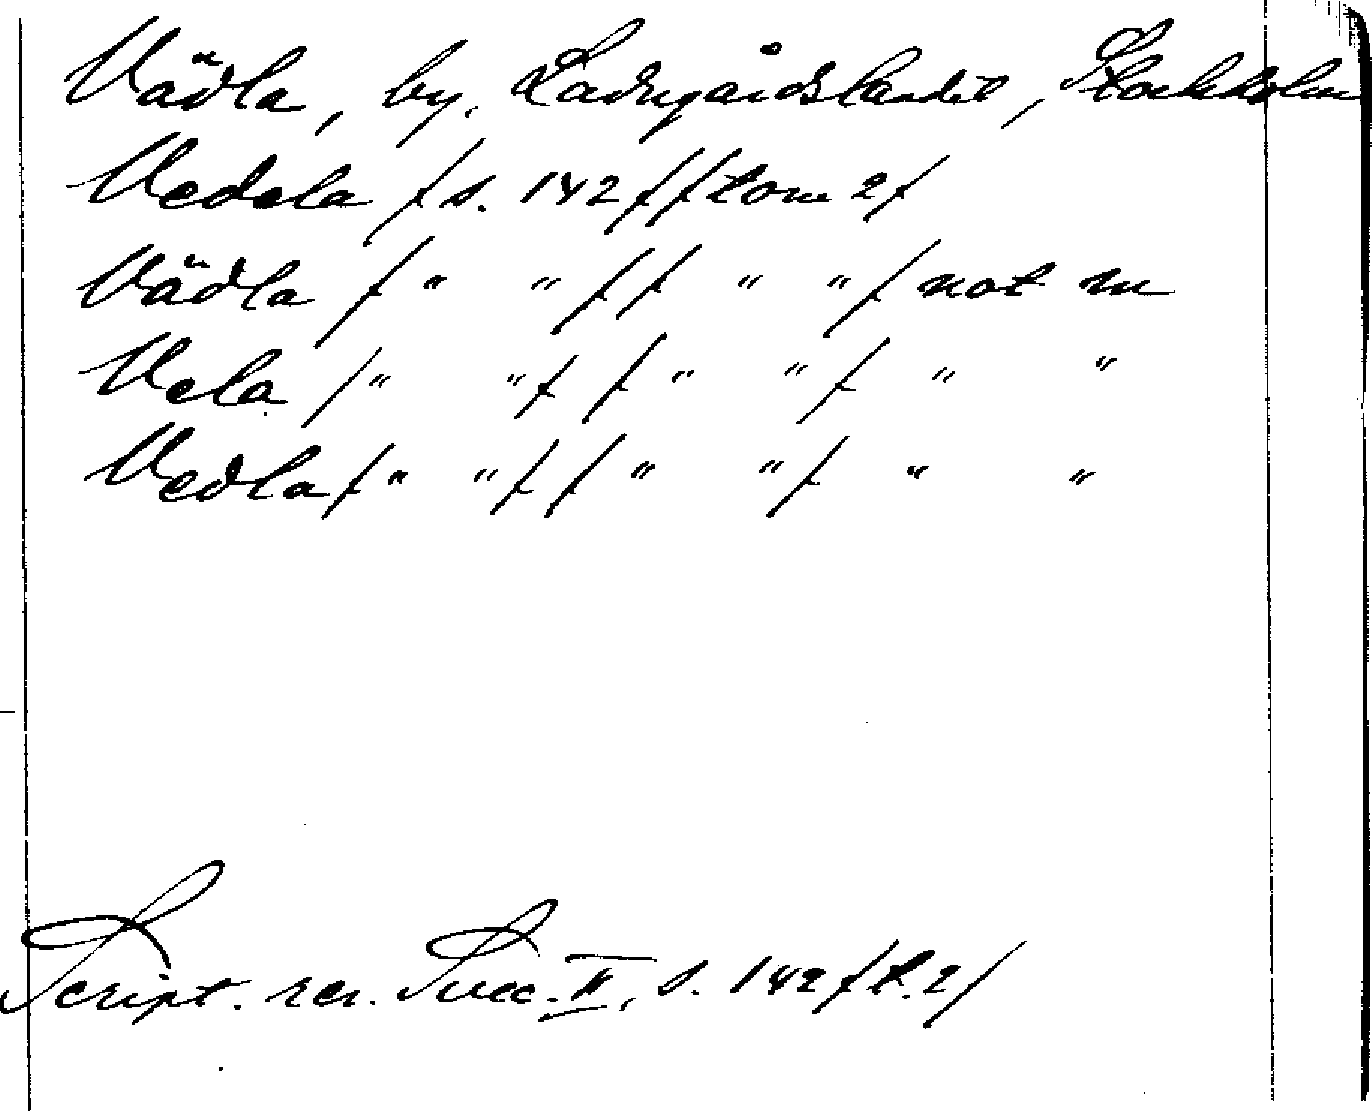 Vädla, by, Ladugårdslandet, Stockholm
Vedela /s. 142/ /tom 2/
Vädla /" "/ /" "/ not m
Vela /" "/ /" "/ " "
Vedla /" "/ /" "/ " "
Script. rer. Svec. II, s. 142 /t. 2/